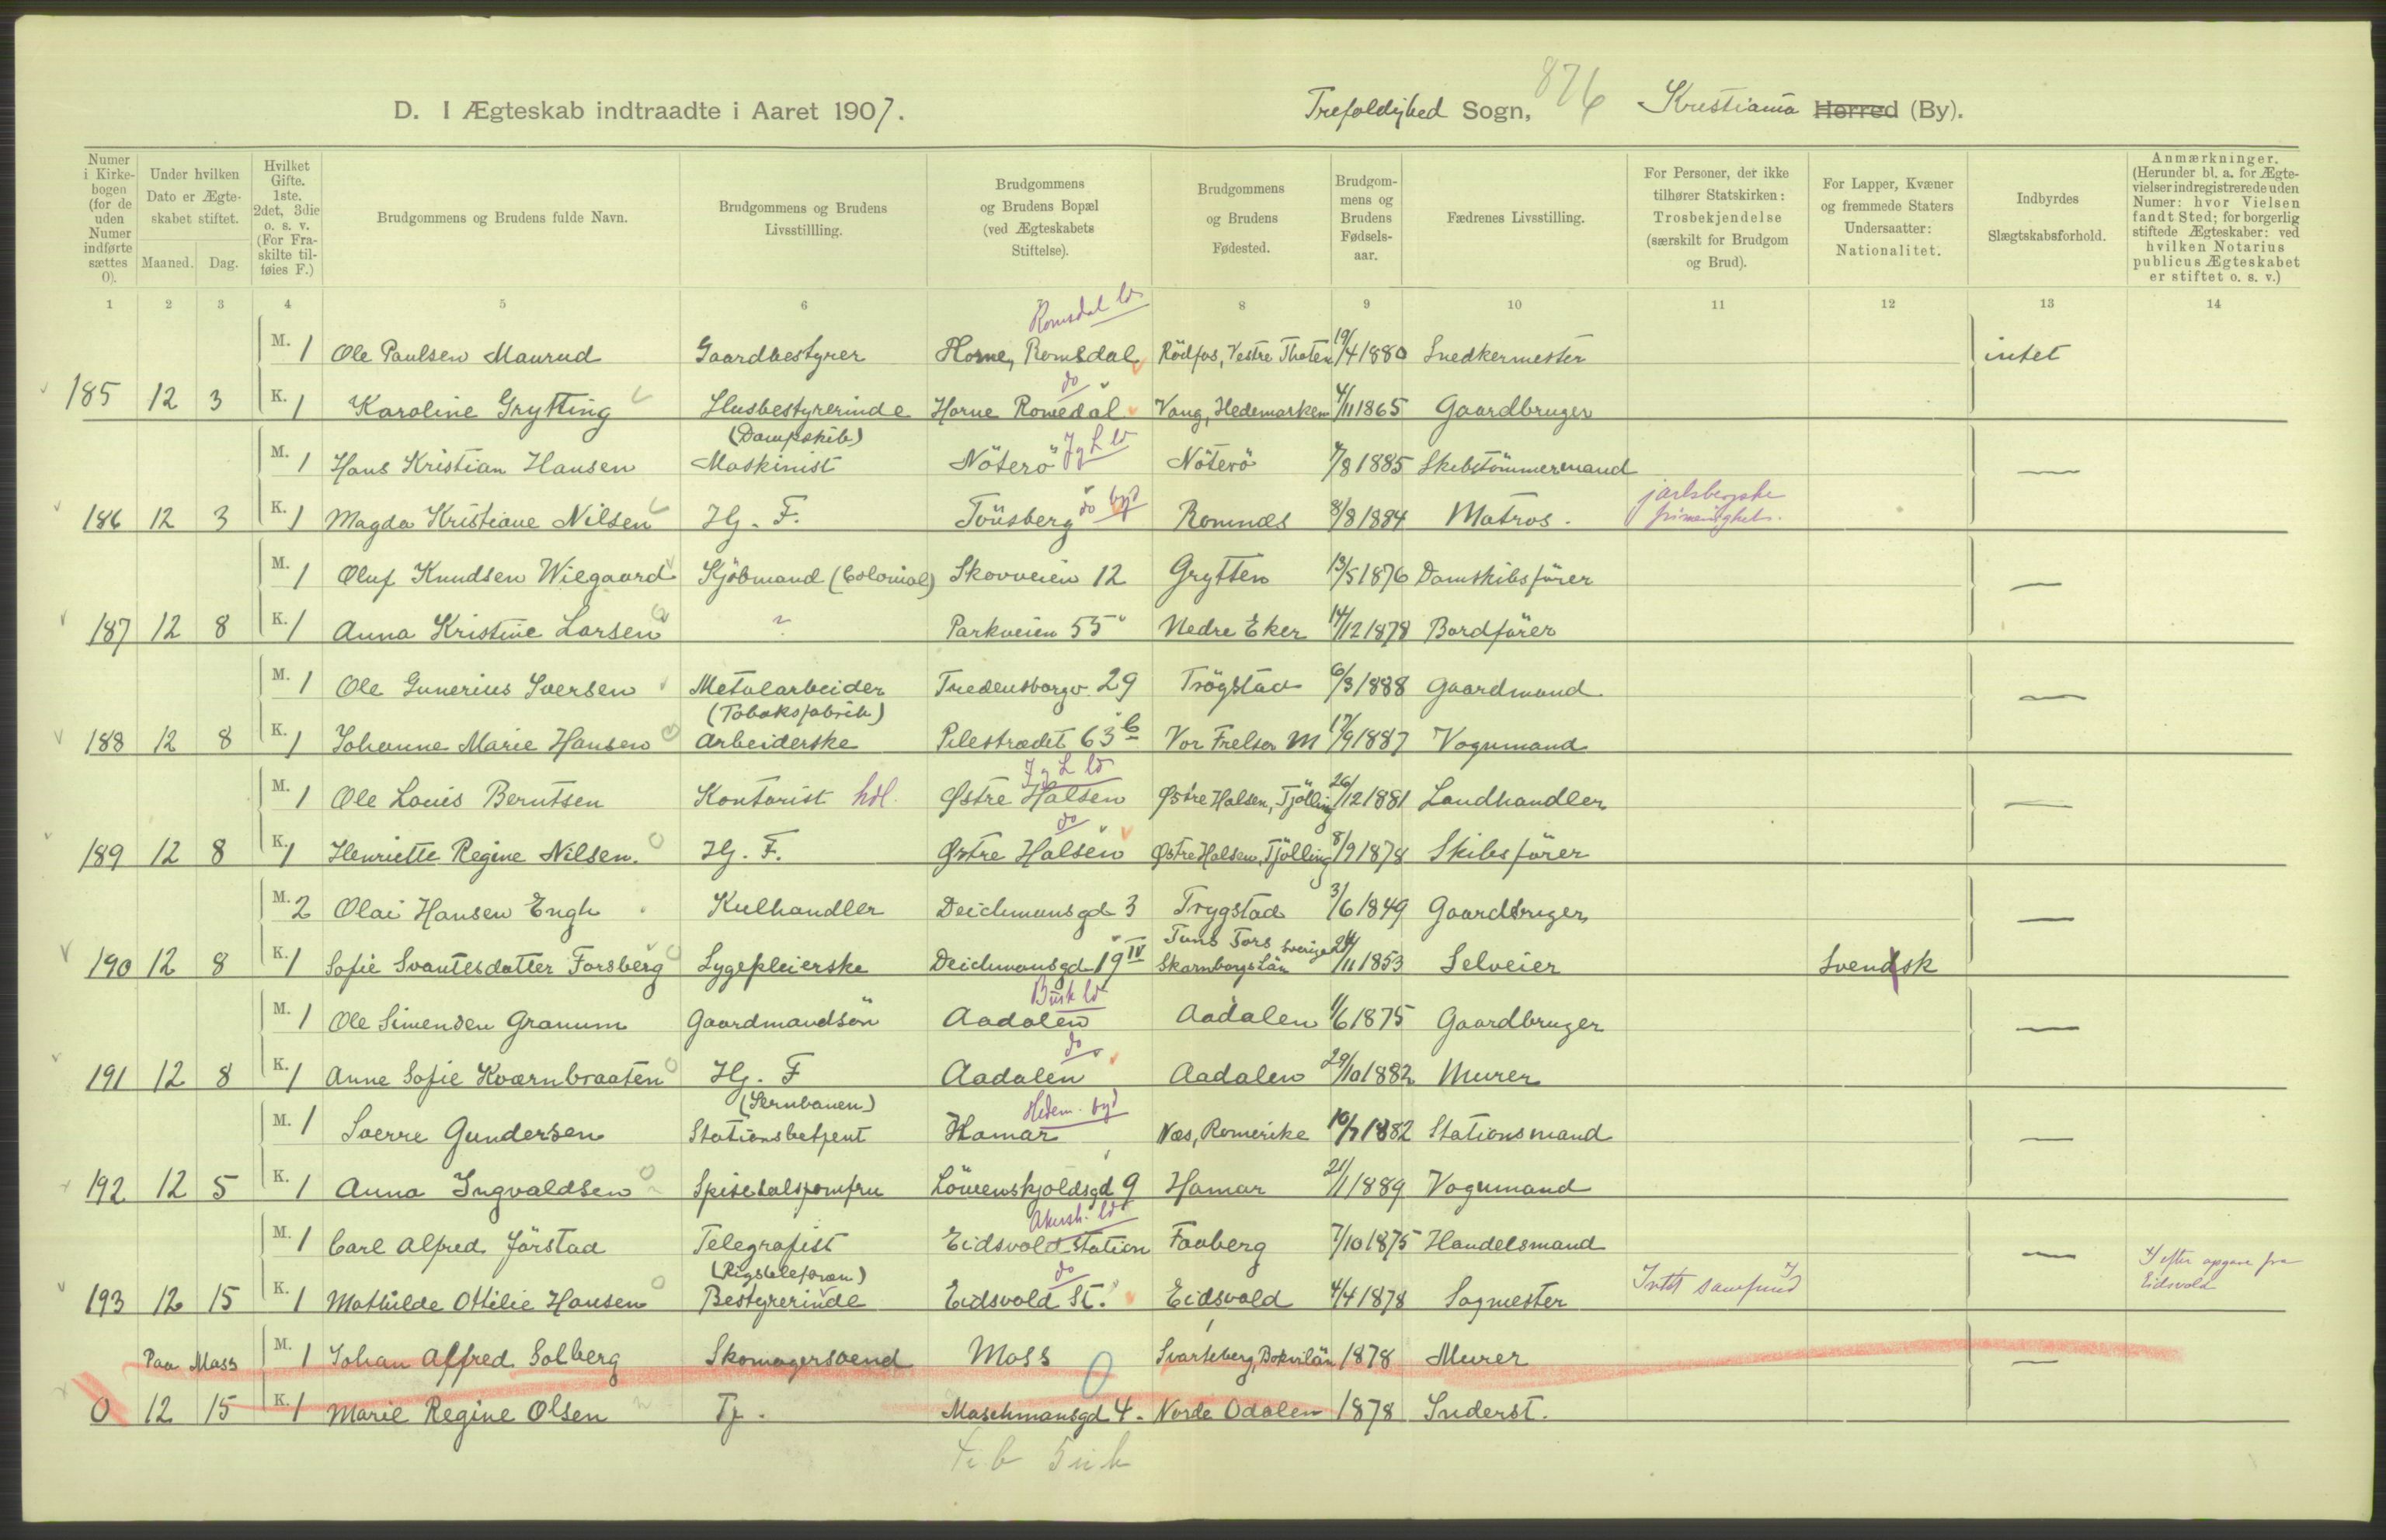 876
D. I Ægteskab indtraadte i Aaret 1907. Trefoldighed Sogn, Kristiania Herred (By).
Numer i Kirkebogen (for de uden Numer indførte sættes 0).
Under hvilken Dato er Ægteskabet stiftet.
Maaned. Dag.
Hvilket Gifte. 1ste, 2det, 3die o. s. v. (For Fraskilte tilføies F.)
Brudgommens og Brudens fulde Navn.
Brudgommens og Brudens Livsstillling.
Brudgommens og Brudens Bopæl (ved Ægteskabets Stiftelse).
Brudgommens og Brudens Fødested.
Brudgommens og Brudens Fødselsaar.
Fædrenes Livsstilling.
For Personer, der ikke tilhører Statskirken: Trosbekjendelse (særskilt for Brudgom og Brud).
For Lapper, Kvæner og fremmede Staters Undersaatter: Nationalitet.
Indbyrdes Slægtskabsforhold.
Anmærkninger. (Herunder bl. a. for Ægtevielser indregistrerede uden Numer: hvor Vielsen fandt Sted; for borgerlig stiftede Ægteskaber: ved hvilken Notarius publicus Ægteskabet er stiftet o. s. v.)
1 2 3 4 5 6 8 9 10 11 12 13 14
Romsdal ld
M. 1 Ole Paulsen Maurud Gaardbestyrer Horne, Romsdal Rödfos, Vestre Thoten 19/4 1880 Snedkermester intet
do
185 12 3 K. 1 Karoline Grytting Husbestyrerinde Horne Romsdal Vang, Hedemarken 4/11 1865 Gaardbruger
(Dampskib) J g L ld
M. 1 Hans Kristian Hansen Maskinist Nöterö Nöterö 7/8 1885 Skibstömmermand —
do byd jarlsbergske
186 12 3 K. 1 Magda Kristiane Nilsen Hj. F. Tönsberg Ramnæs 8/8 1884 Matros. frimenighet.
M. 1 Oluf Knudsen Wiegaard Kjöbmand (Colonial) Skovveien 12 Grytten 13/5 1876 Damskibsförer —
187 12 8 K. 1 Anna Kristine Larsen ~ Parkveien 55 Nedre Eker 14/12 1878 Bordförer
M. 1 Ole Gunerius Iversen Metalarbeider Fredensborgv. 29 Trögstad 6/3 1888 Gaardmand —
(Tobaksfabrik)
188 12 8 K. 1 Johanne Marie Hansen Arbeiderske Pilestrædet 63 b Vor Frelser M 17/9 1887 Vognmand
J g L ld
M. 1 Ole Louis Berntsen Kontorist hdl. Østre Halsen Østre Halsen, Tjölling 26/12 1881 Landhandler —
do
189 12 8 K. 1 Henriette Regine Nilsen. Hj. F. Østre Halsen Østre Halsen, Tjölling 8/9 1878 Skibsförer
M. 2 Olai Hansen Engh Kulhandler Deichmansgd 3 Trygstad 3/6 1849 Gaardbruger —
Tuns Fors Sverige
190 12 8 K. 1 Sofie Svantesdatter Forsberg Sygepleierske Deichmansgd 19 IV Skarnborgs Län 24/11 1853 Selveier Svensk
Busk ld
M. 1 Ole Simensen Granum Gaardmandsön Aadalen Aadalen 1/6 1875 Gaardbruger —
do
191 12 8 K. 1 Anne Sofie Kværnbraaten Hj. F Aadalen Aadalen 29/10 1882 Murer
(Jernbanen) Hedem. byd
M. 1 Sverre Gundersen Stationsbetjent Hamar Næs, Romerike 10/7 1882 Stationsmand —
192 12 5 K. 1 Anna Ingvaldsen Spisesalsjomfru Löwenskjoldsgd 9 Hamar 21/1 1889 Vognmand
Akersh. ld
M. 1 Carl Alfred Jörstad Telegrafist Eidsvold station Faaberg 7/10 1875 Handelsmand —
(Rigstelefonen) do x/ x/ efter opgave fra
193 12 15 K. 1 Mathilde Ottilie Hansen Bestyrerinde Eidsvold St. Eidsvold 4/4 1878 Sagmester Intet samfund Eidsvold
Paa Moss M. 1 Johan Alfred Solberg Skomagersvend Moss Svarteberg, Bohuslän 1878 Murer —
0 12 15 K. 1 Marie Regine Olsen Tj. Maschmansgd 4. Nordre Odalen 1878 Inderst.